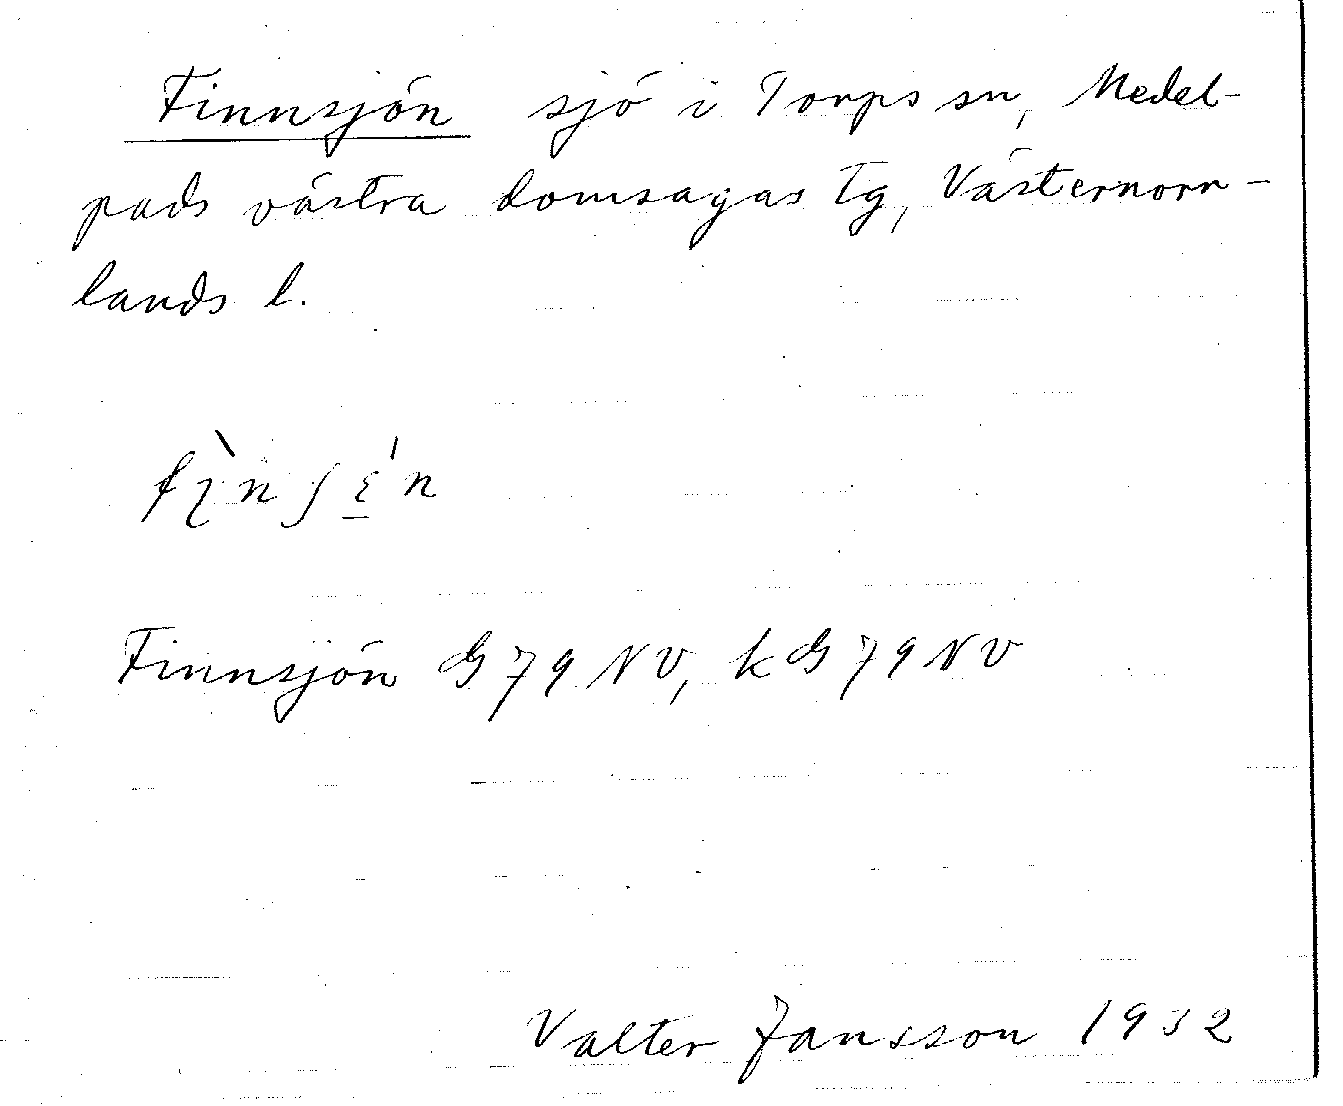 Finnsjön sjö i Torps sn, Medel-
pads västra domsagas tg, Västernorr-
lands l.
Finnsjön G 79 NV, k G 79 NV
Valter Jansson 1932